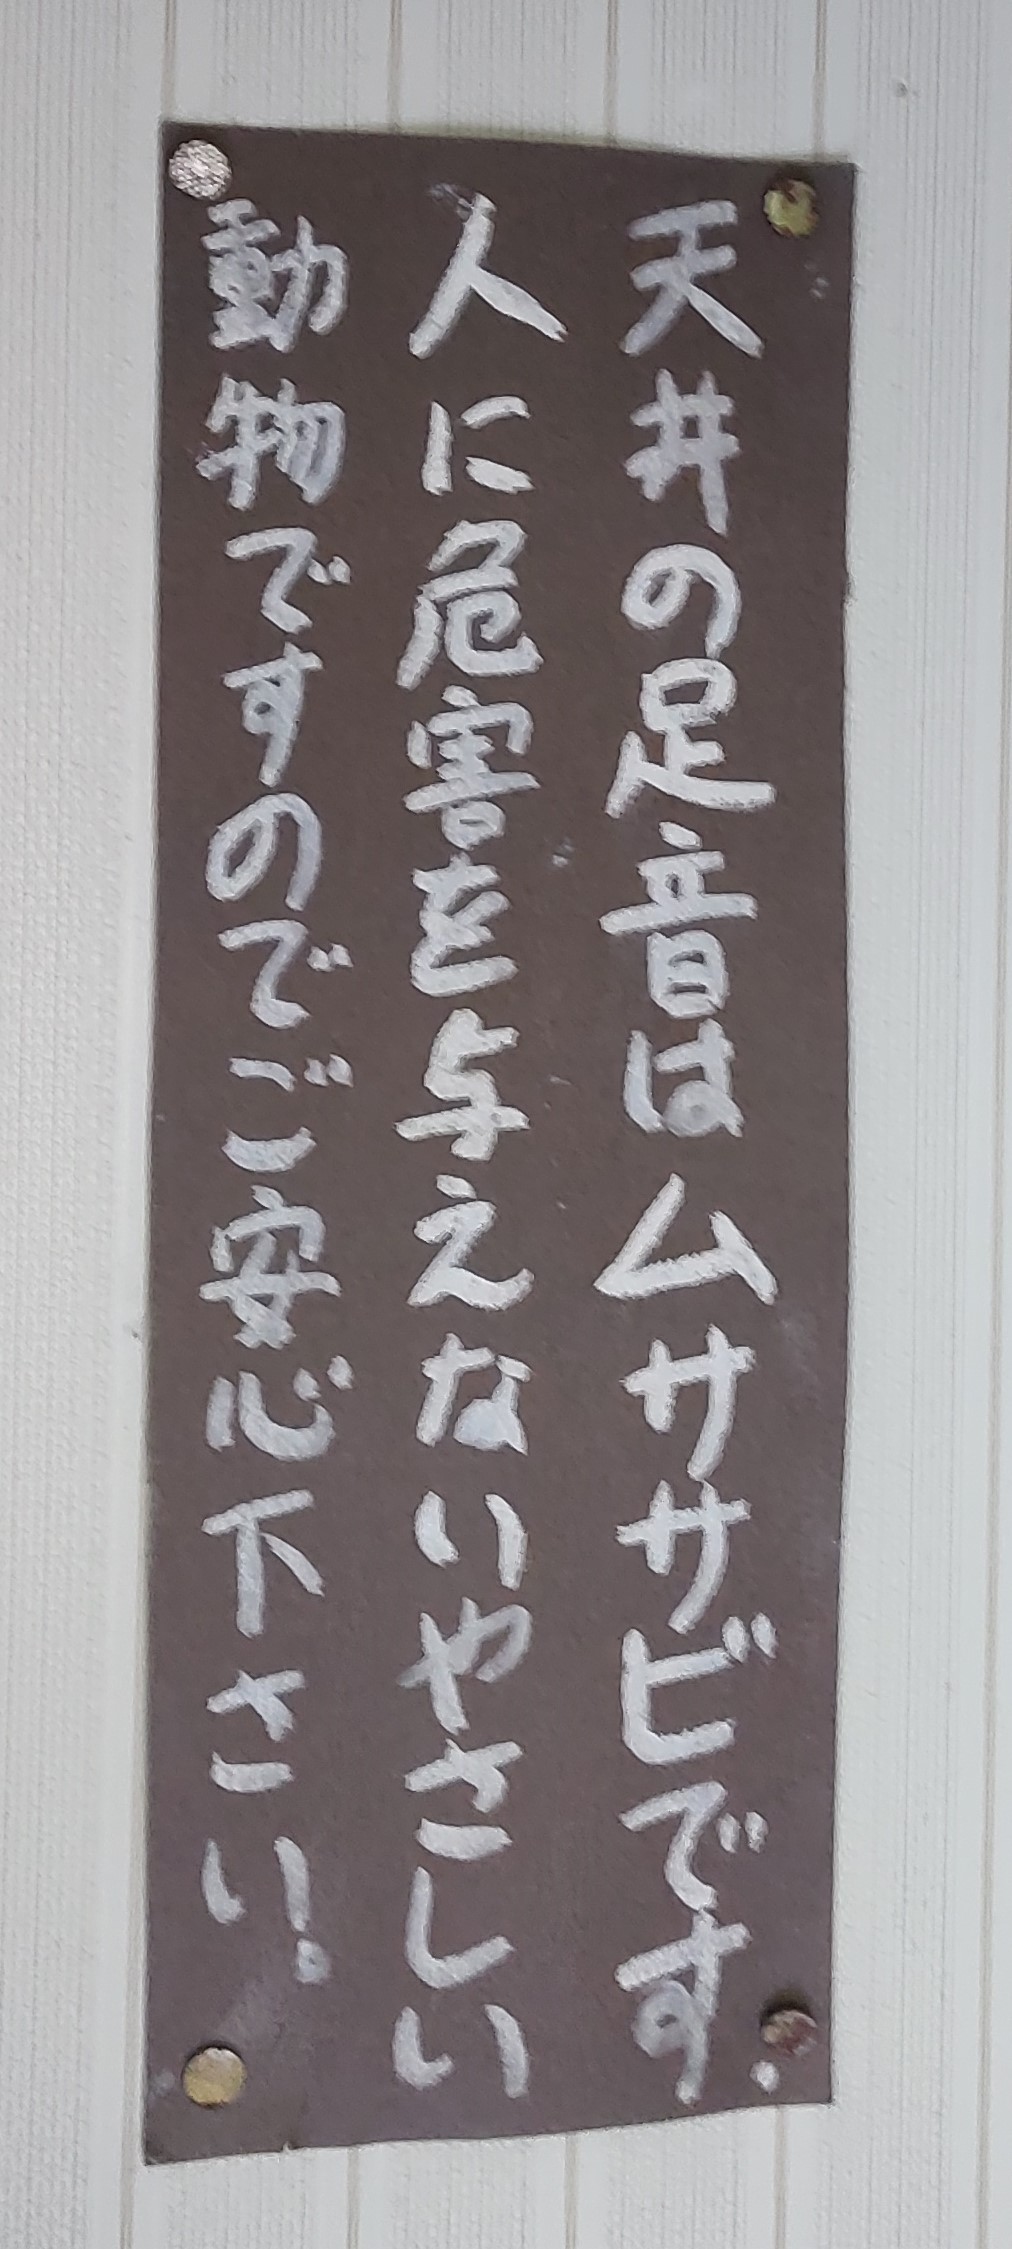 天井の足音はムササビです.
人に危害を与えないやさしい
動物ですのでご安心下さい。